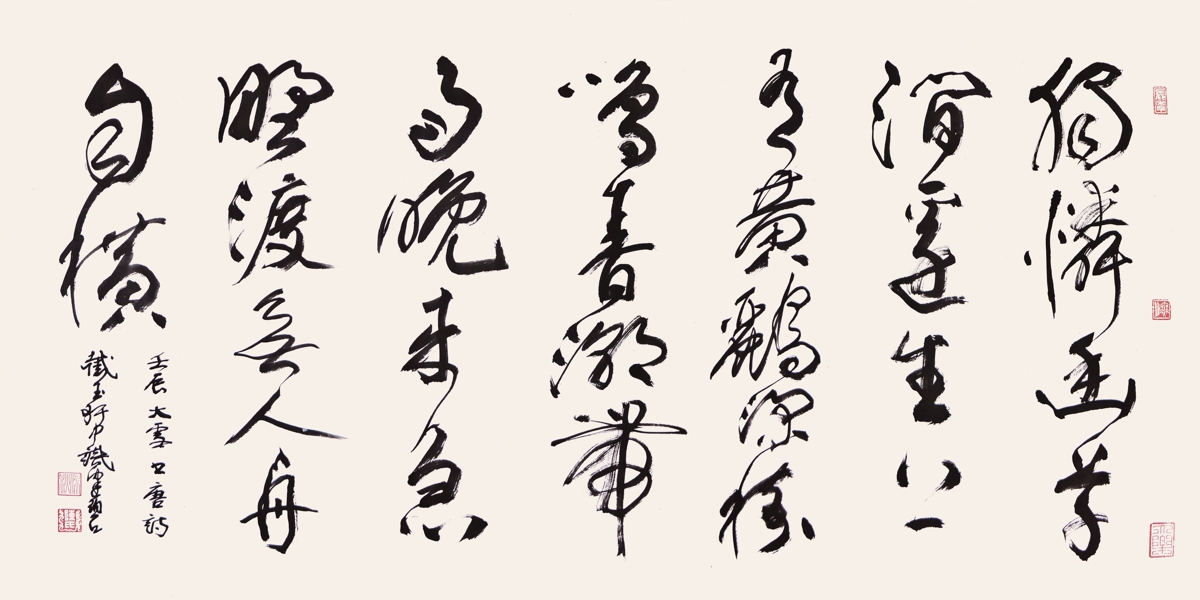 獨憐幽草
澗邊生上
有黃鸝深樹
鳴春潮帶
雨晚來急
野渡無人舟
自橫
壬辰大雪書唐詩